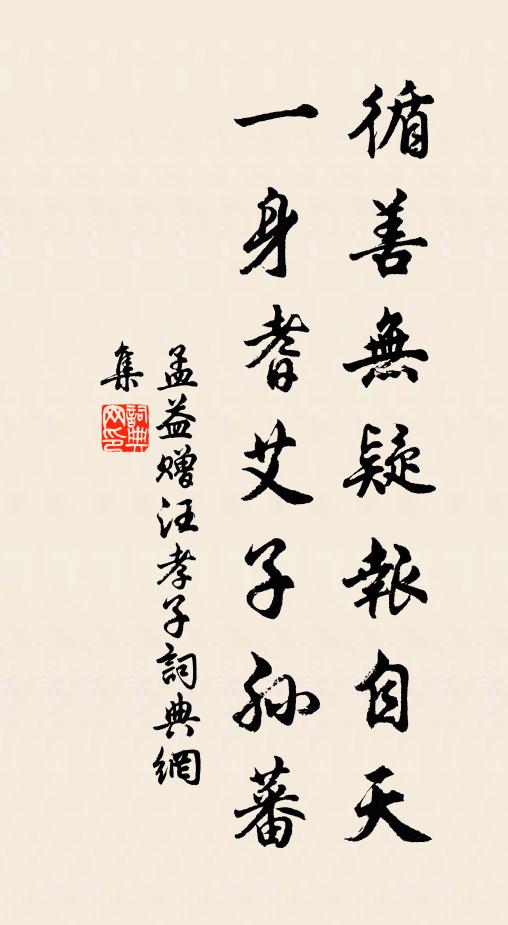 循善無疑報自天
一身耆艾子孫蕃
孟益贈汪孝子詞典網
集
詞典网印